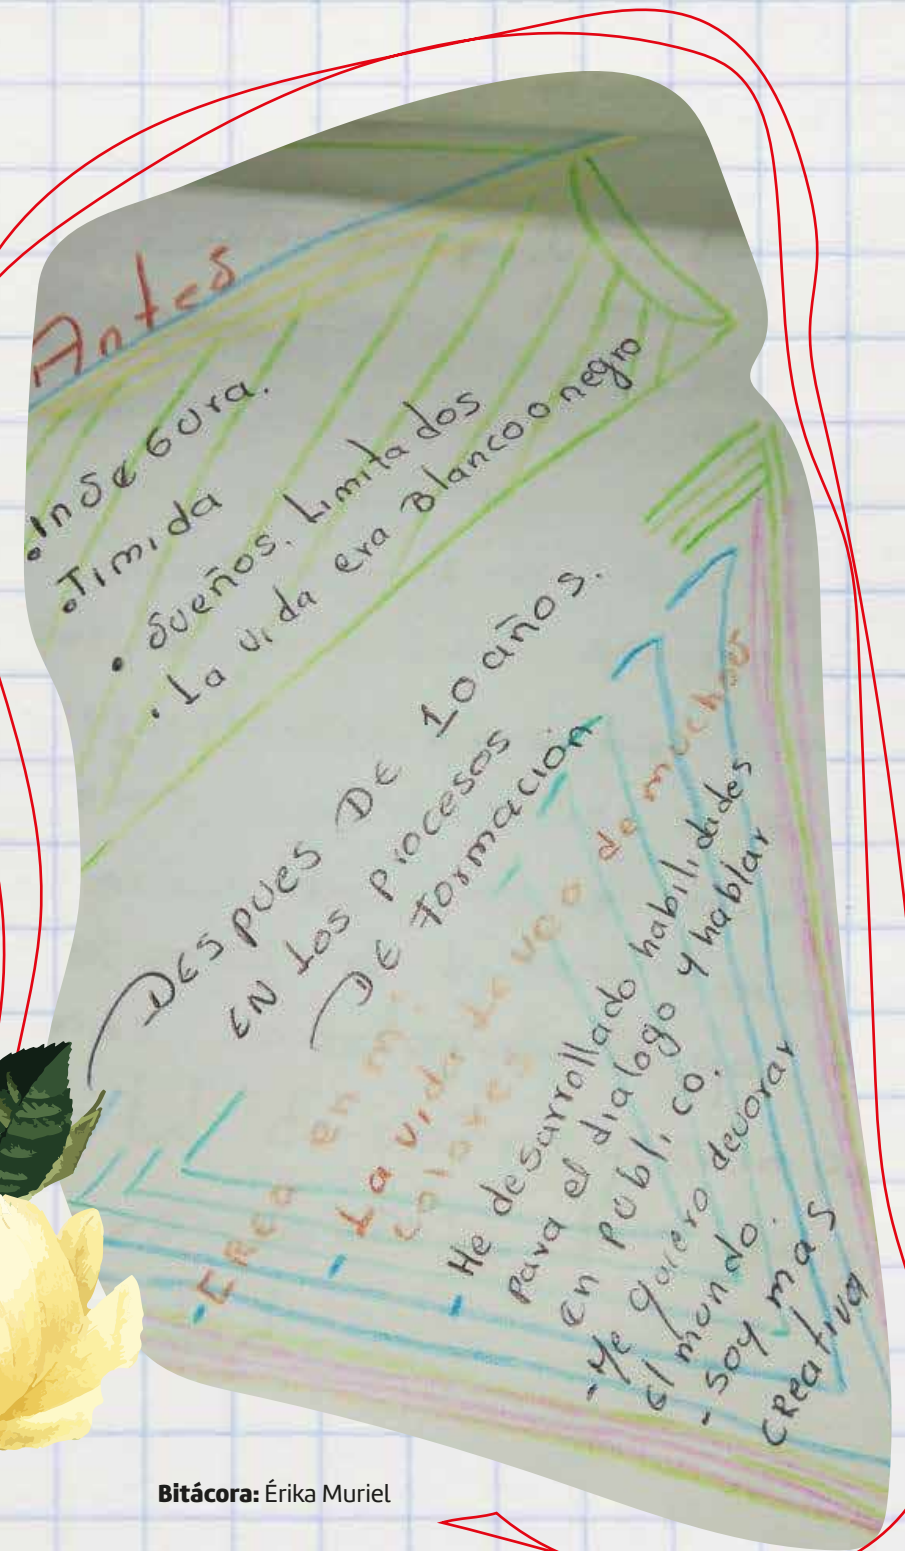 Antes
. Insegura.
. Timida
• Sueños. Limitados
. La vida era Blanco o negro
DESPUES DE 10 años.
EN LOS procesos
DE formación
- CREO en mi.
- La vida la veo de muchos
colores
- He desarrollado habilidades
para el dialogo y hablar
en publico.
- Me quiero devorar
el mundo.
- soy mas
creativa
Bitácora: Érika Muriel